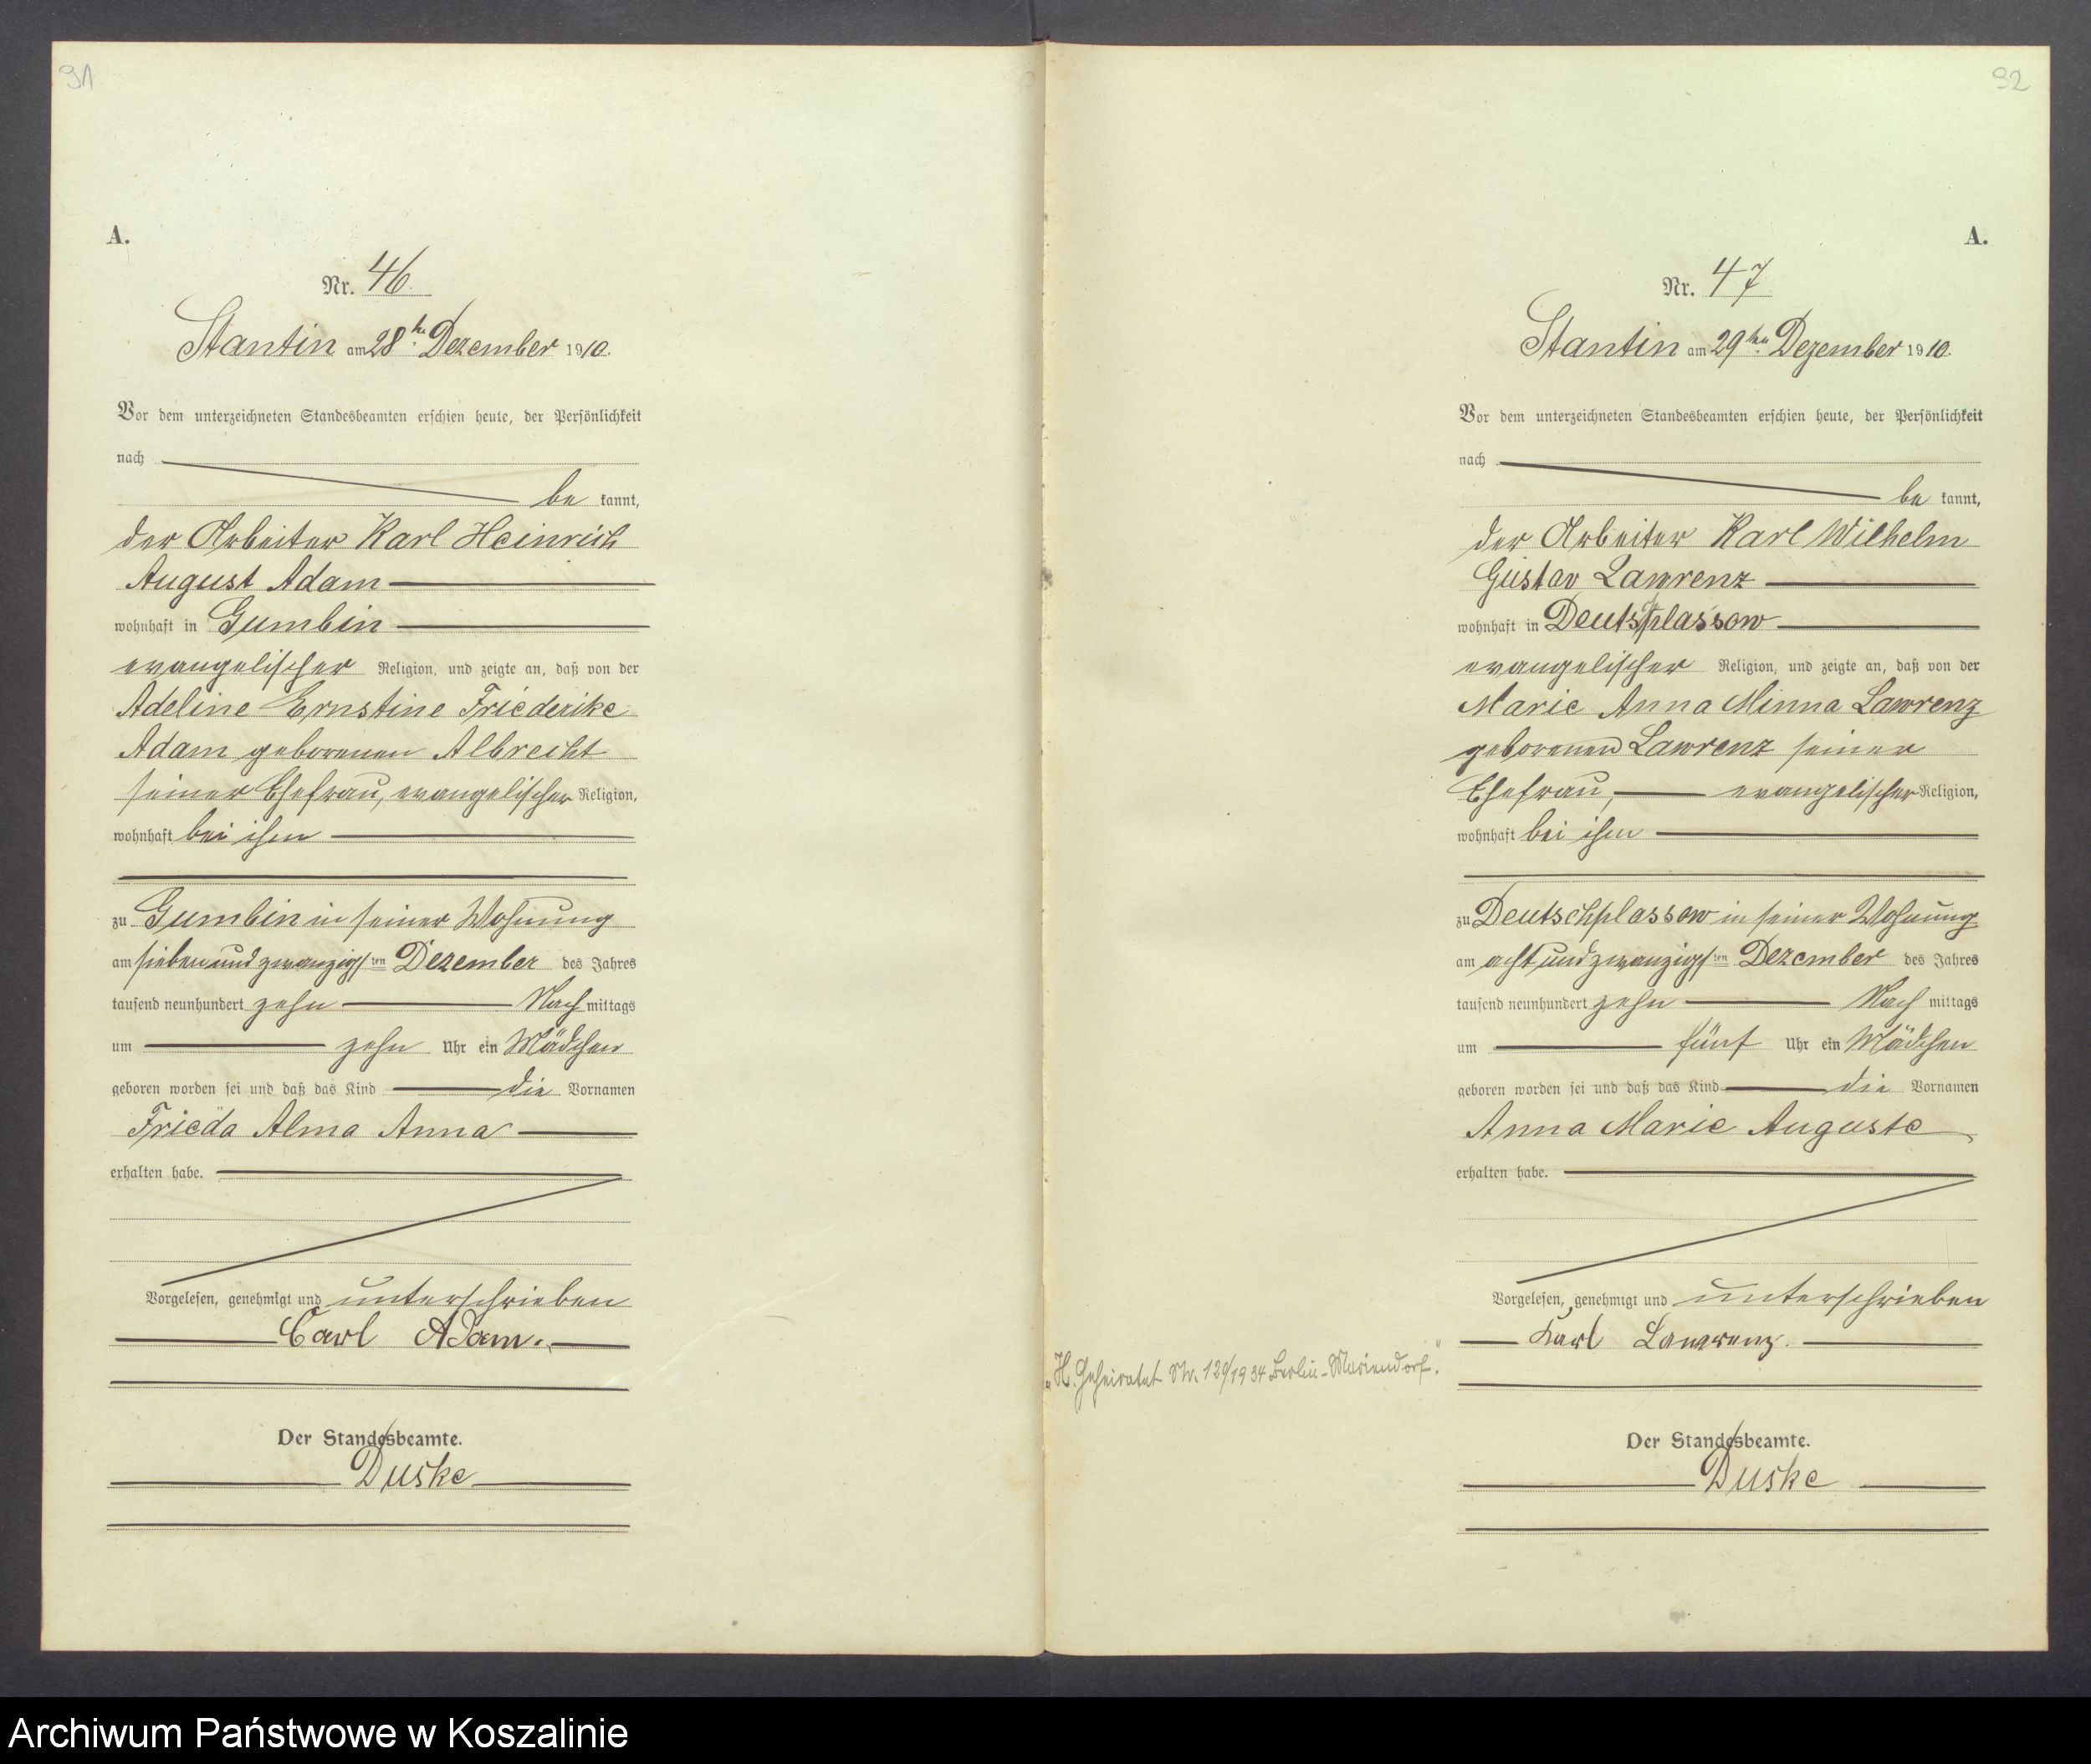 91
A.
Nr. 46.
Stantin am 28ten Dezember 1910.
Vor dem unterzeichneten Standesbeamten erschien heute, der Persönlichkeit
nach
be kannt,
der Arbeiter Karl Heinrich
August Adam
wohnhaft in Gumbin
evangelischer Religion, und zeigte an, daß von der
Adeline Ernstine Friederike
Adam geborenen Albrecht
seiner Ehefrau, evangelischer Religion,
wohnhaft bei ihm
zu Gumbin in seiner Wohnung
am siebenundzwanzigsten Dezember des Jahres
tausend neunhundert zehn Nach mittags
um zehn Uhr ein Mädchen
geboren worden sei und daß das Kind die Vornamen
Frieda Alma Anna
erhalten habe.
Vorgelesen, genehmigt und unterschrieben
Carl Adam.
Der Standesbeamte.
Duske
92
A.
Nr. 47
Stantin am 29ten Dezember 1910.
Vor dem unterzeichneten Standesbeamten erschien heute, der Persönlichkeit
nach
be kannt,
der Arbeiter Karl Wilhelm
Gustav Lawrenz
wohnhaft in Deutschplassow
evangelischer Religion, und zeigte an, daß von der
Marie Anna Minna Lawrenz
geborenen Lawrenz seiner
Ehefrau, evangelischer Religion,
wohnhaft bei ihm
zu Deutschplassow in seiner Wohnung
am achtundzwanzigsten Dezember des Jahres
tausend neunhundert zehn Nach mittags
um fünf Uhr ein Mädchen
geboren worden sei und daß das Kind die Vornamen
Anna Marie Auguste
erhalten habe.
Vorgelesen, genehmigt und unterschrieben
Karl Lawrenz.
„H. Geheiratet Nr. 129/1934 Berlin-Mariendorf."
Der Standesbeamte.
Duske
Archiwum Państwowe w Koszalinie